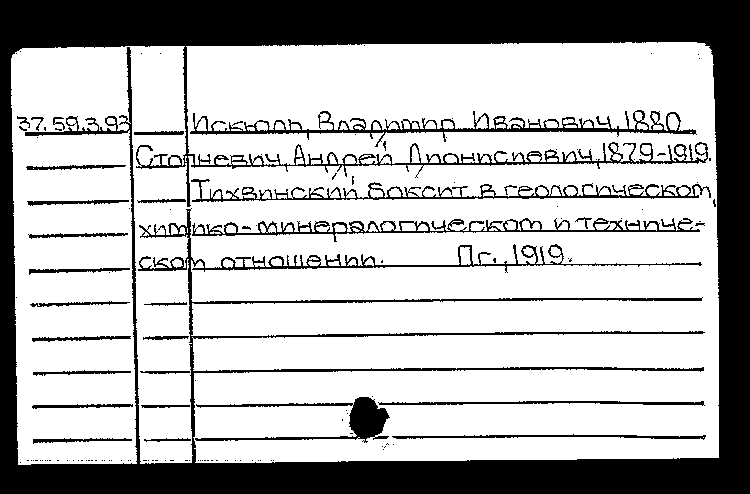 37.59.3.93 Искюль, Владимир Иванович, 1880
Стопневич, Андрей Дионисиевич, 1879-1919.
Тихвинский боксит в геологическом,
химико-минералогическом и техниче-
ском отношении. Пг., 1919.